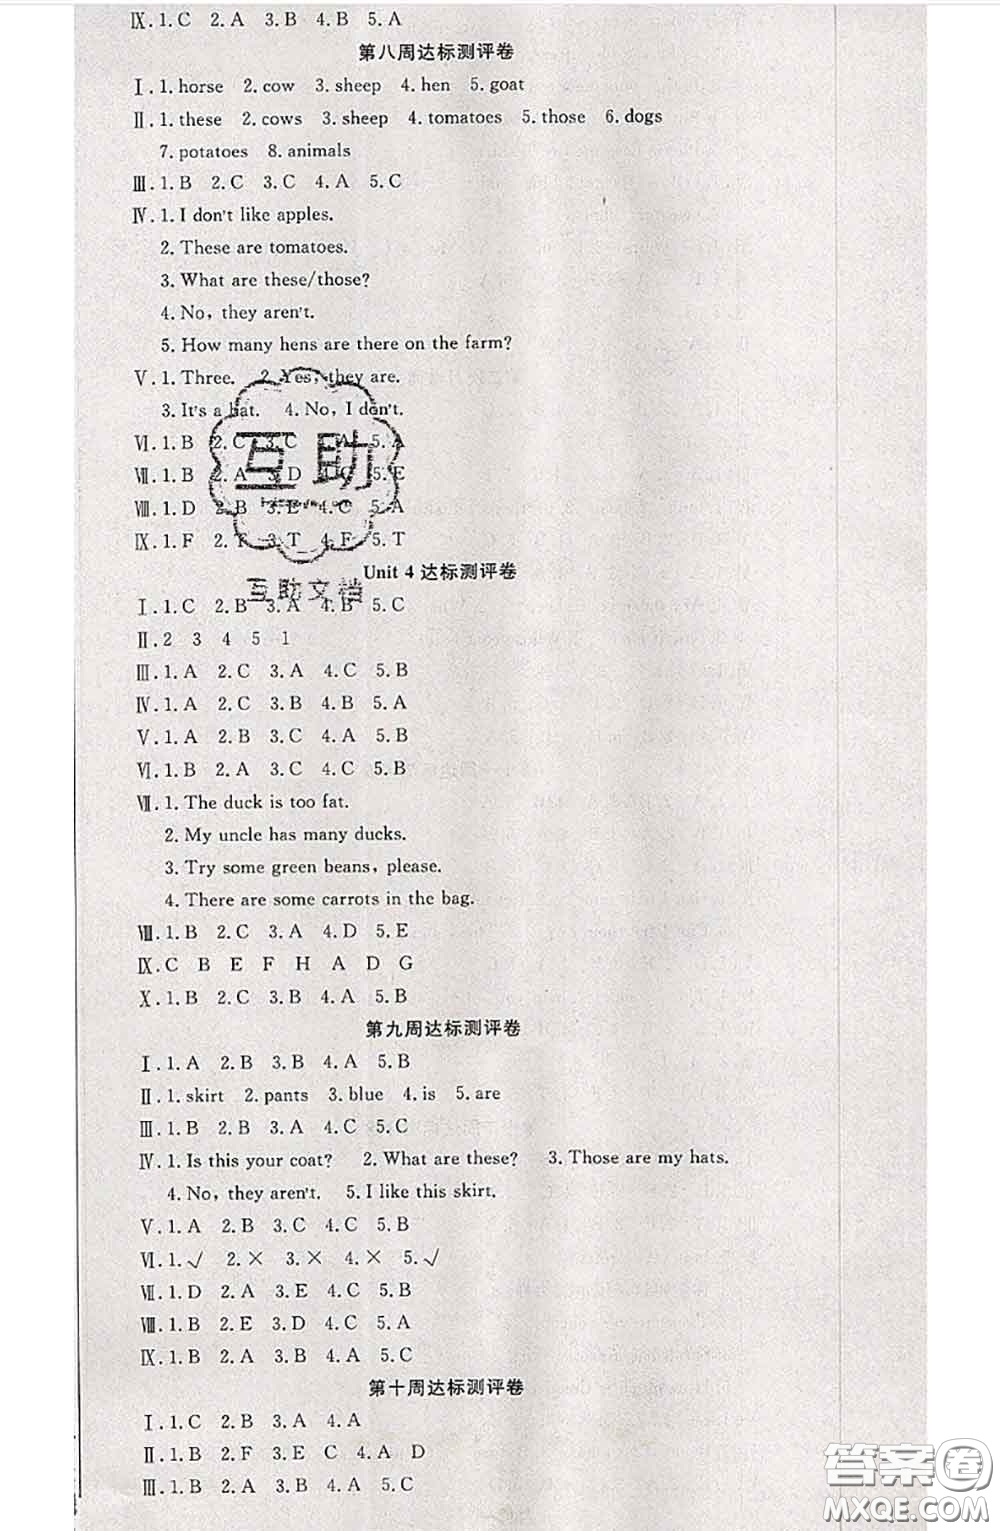 Ⅸ. 1. C 2. A 3. B 4. B 5. A
第八周达标测评卷
Ⅰ. 1. horse 2. cow 3. sheep 4. hen 5. goat
Ⅱ. 1. these 2. cows 3. sheep 4. tomatoes 5. those 6. dogs
7. potatoes 8. animals
Ⅲ. 1. B 2. C 3. C 4. A 5. C
Ⅳ. 1. I don't like apples.
2. These are tomatoes.
3. What are these/those?
4. No, they aren't.
5. How many hens are there on the farm?
Ⅴ. 1. Three. 2. Yes, they are.
3. It's a hat. 4. No, I don't.
Ⅵ. 1. B 2. C 3. C 4. A 5. A
Ⅶ. 1. B 2. A 3. D 4. C 5. E
Ⅷ. 1. D 2. B 3. E 4. C 5. A
Ⅸ. 1. F 2. 3. T 4. F 5. T
互助
互助文档
Unit 4 达标测评卷
Ⅰ. 1. C 2. B 3. A 4. B 5. C
Ⅱ. 2 3 4 5 1
Ⅲ. 1. A 2. C 3. A 4. C 5. B
Ⅳ. 1. A 2. C 3. B 4. B 5. A
Ⅴ. 1. A 2. B 3. C 4. A 5. B
Ⅵ. 1. B 2. A 3. C 4. A 5. B
Ⅶ. 1. The duck is too fat.
2. My uncle has many ducks.
3. Try some green beans, please.
4. There are some carrots in the bag.
Ⅷ. 1. B 2. C 3. A 4. D 5. E
Ⅸ. C B E F H A D G
Ⅹ. 1. B 2. C 3. B 4. A 5. B
第九周达标测评卷
Ⅰ. 1. A 2. B 3. B 4. A 5. B
Ⅱ. 1. skirt 2. pants 3. blue 4. is 5. are
Ⅲ. 1. B 2. B 3. A 4. C 5. C
Ⅳ. 1. Is this your coat? 2. What are these? 3. Those are my hats.
4. No, they aren't. 5. I like this skirt.
Ⅴ. 1. A 2. B 3. C 4. C 5. B
Ⅵ. 1. √ 2. × 3. × 4. × 5. √
Ⅶ. 1. D 2. A 3. E 4. C 5. B
Ⅷ. 1. B 2. E 3. D 4. C 5. A
Ⅸ. 1. B 2. A 3. B 4. A 5. C
第十周达标测评卷
Ⅰ. 1. C 2. B 3. A 4. A
Ⅱ. 1. B 2. F 3. E C 4. A D
Ⅲ. 1. B 2. A 3. B 4. A 5. C
答案卷
MXQE.COM